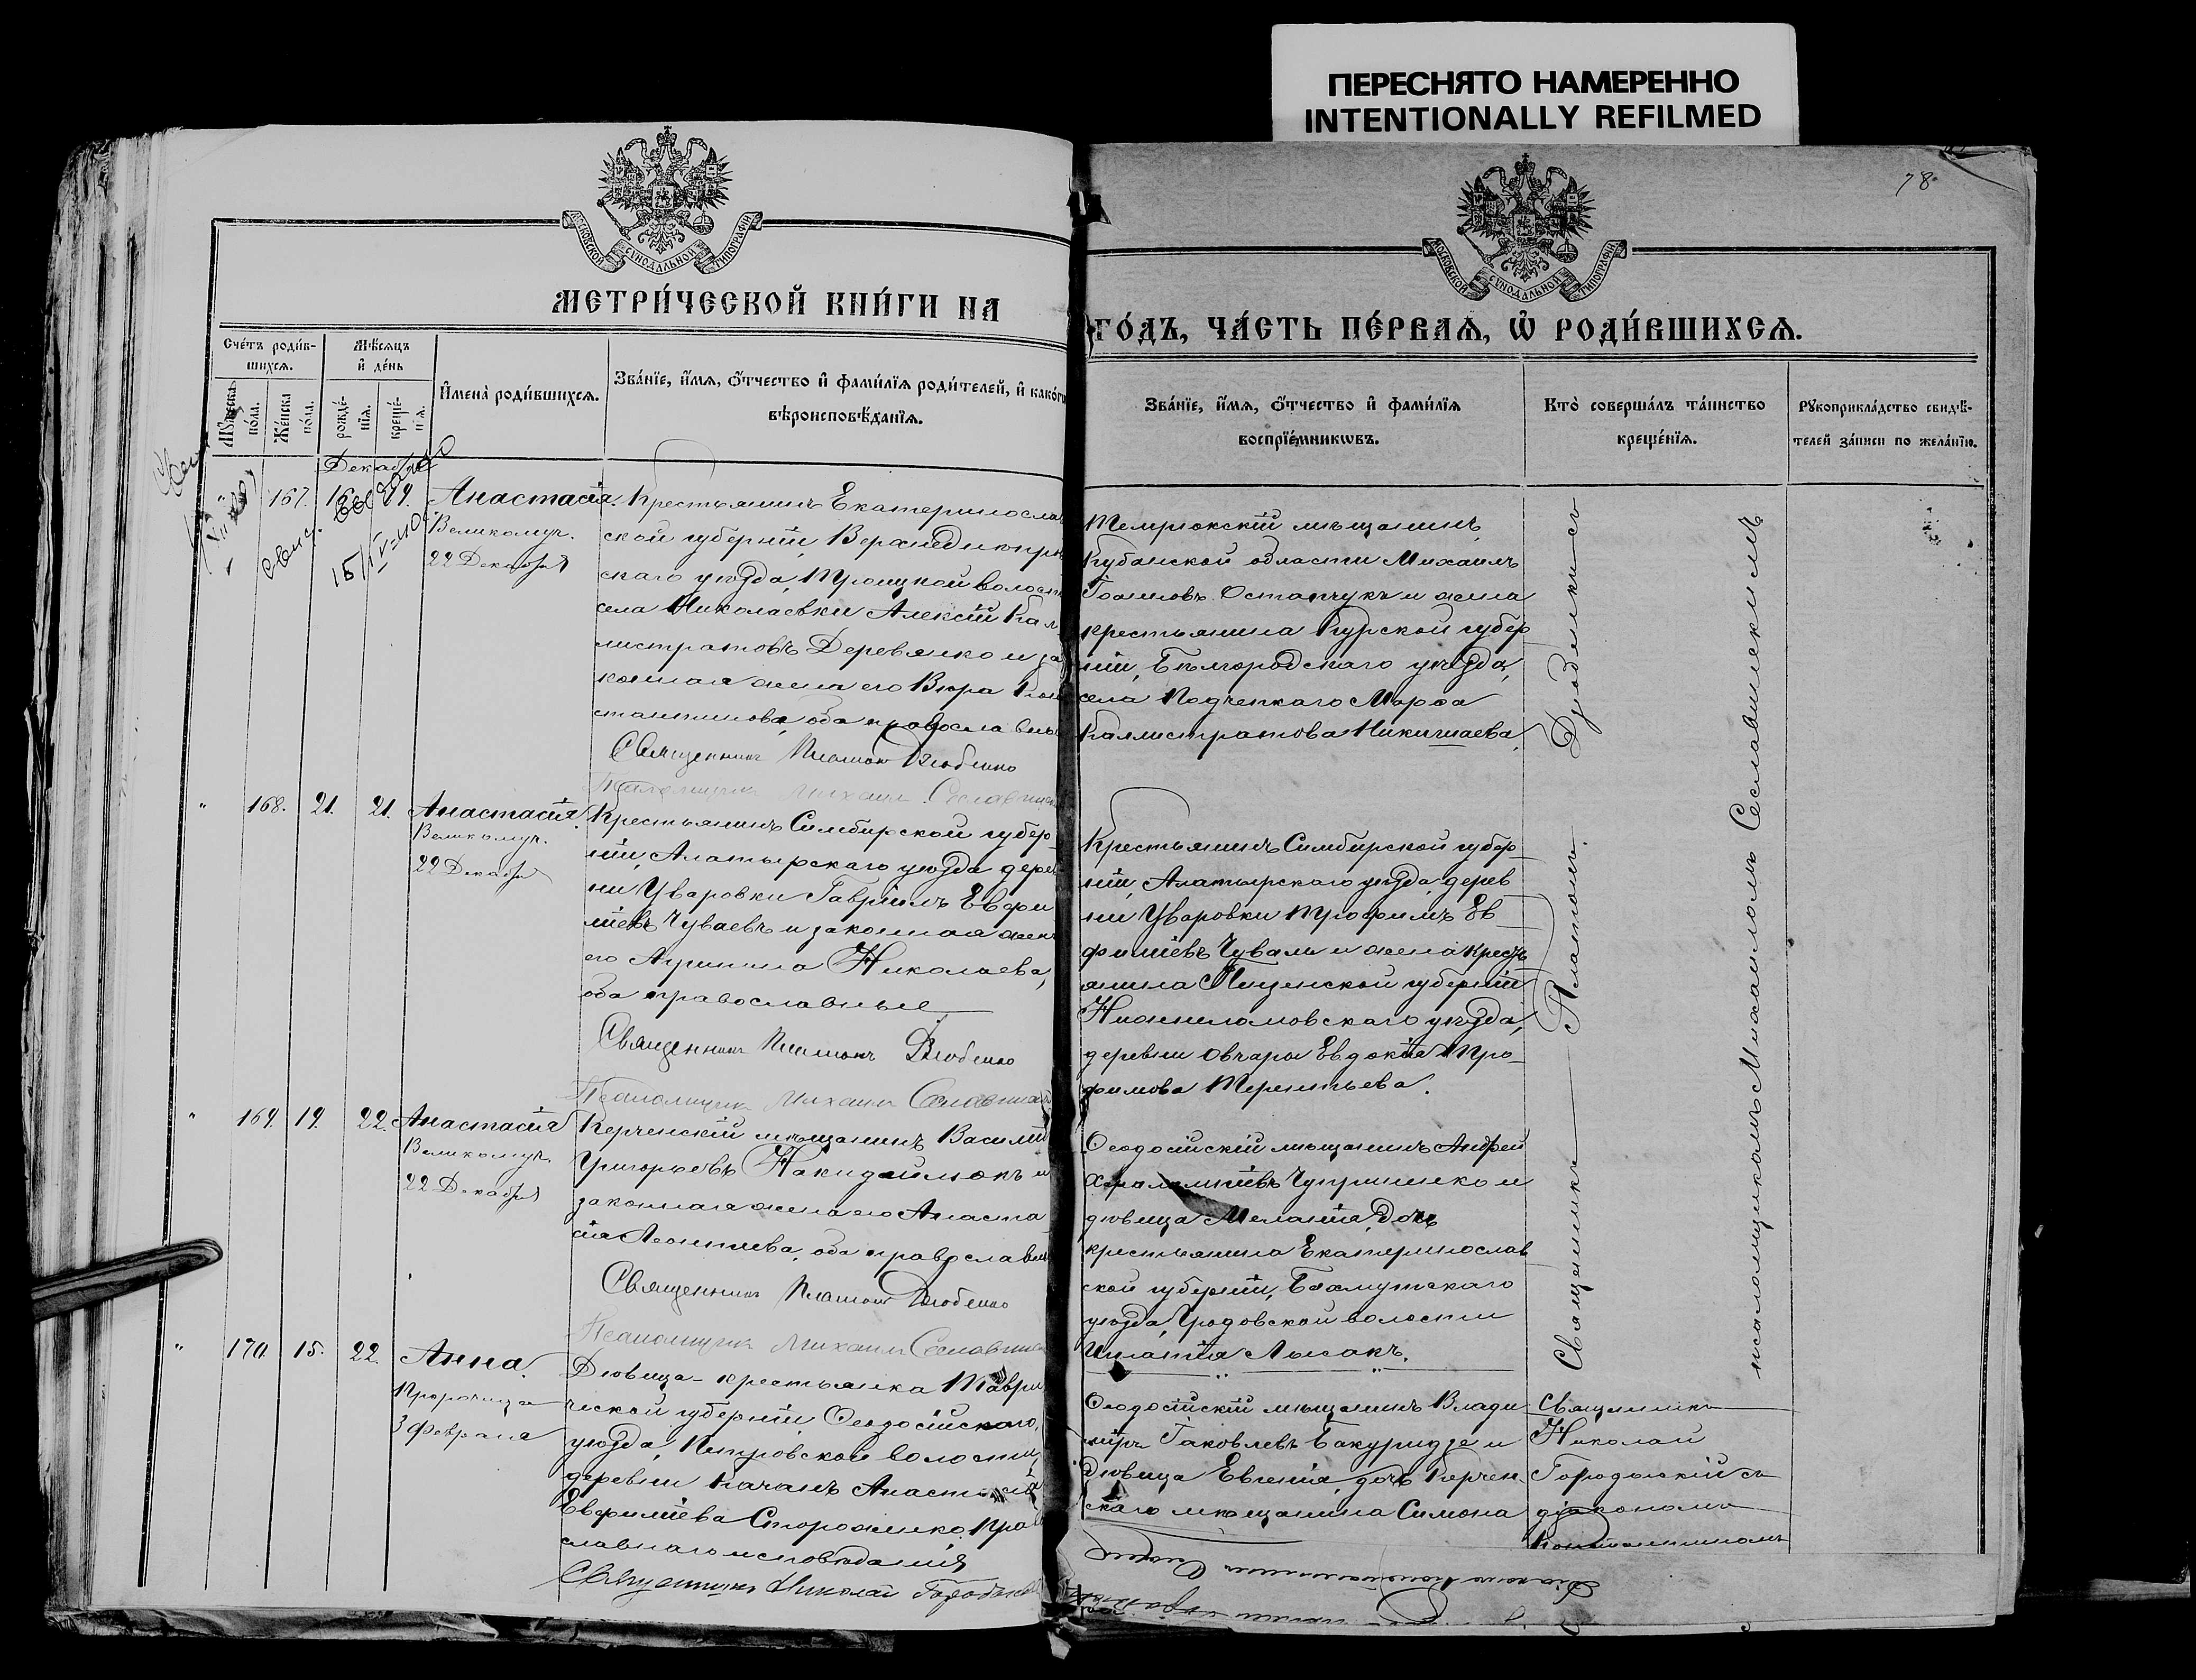 ПЕРЕСНЯТО НАМЕРЕННО
INTENTIONALLY REFILMED
78
МОСКОВСКОЙ СУНОДАЛЬНОЙ ТИПОГРАФІИ
МОСКОВСКОЙ СУНОДАЛЬНОЙ ТИПОГРАФІИ
МЕТРИ́ЧЕСКОЙ КНИ́ГИ НА
ГО́ДЪ, ЧА́СТЬ ПЕ́РВАѦ, Ѡ҆ РОДИ́ВШИХСѦ.
Сче́тъ роди́в-
шихсѧ.
Мѣ́сѧцъ
и҆ де́нь
Мꙋ́жеска
по́ла.
Же́нска
по́ла.
рожде́-
нїѧ.
креще́-
нїѧ.
И҆мена̀ роди́вшихсѧ.
Зва́нїе, и҆́мѧ, ѻ҆́тчество и҆ фами́лїѧ роди́телей, и҆ како́гѡ
вѣроисповѣ́данїѧ.
Зва́нїе, и҆́мѧ, ѻ҆́тчество и҆ фами́лїѧ
воспрїе́мникѡвъ.
Кто̀ соверша́лъ та́инство
креще́нїѧ.
Рꙋкоприкла́дство свидѣ́-
телей за́писи по жела́нїю.
Декабрь
" 167. 16 19. Анастасія.
Великомуч.
22 Декабря
Крестьянинъ Екатеринослав
ской губерніи, Верхнеднѣпров
скаго уѣзда, Троицкой волости
села Николаевки Алексій Кал
листратовъ Деревянко и за
конная жена его Вѣра Кон
стантинова, оба православные
Священникъ Платонъ Дзюбенко
Псаломщикъ Михаилъ Сеславинскій
Темрюкскій мѣщанинъ
Кубанской области Михаилъ
Іоанновъ Остапчукъ и жена
крестьянина Курской губер
ніи, Бѣлгородскаго уѣзда,
села Марѳа
Каллистратова Никишаева.
" 168. 21. 21. Анастасія.
Великомуч.
22 Декабря
Крестьянинъ Симбирской губер-
ніи, Алатырскаго уѣзда, дерев
ни Уваровки Гавріилъ Евфи
міевъ Чуваевъ и законная жена
его Агрипина Николаева,
оба православные
Священникъ Платонъ Дзюбенко
Псаломщикъ Михаилъ Сеславинскій
Крестьянинъ Симбирской губер-
ніи, Алатырскаго уѣзда, дерев
ни Уваровки Трофимъ Ев-
фиміевъ и жена крестъ
янина Пензенской губерніи
Нижнеломовскаго уѣзда,
деревни Овчары Евдокія Тро-
фимова Терентьева.
" 169. 19. 22. Анастасія
Великомуч.
22 Декабря
Керченскій мѣщанинъ Василій
Григорьевъ и
законная жена его Анаста
сія Леонтіева, оба православные
Священникъ Платонъ Дзюбенко
Псаломщикъ Михаилъ Сеславинскій
Ѳеодосійскій мѣщанинъ Андрей
Харалампіевъ Чупринко и
дѣвица Меланія, дочь
крестьянина Екатеринослав
ской губерніи, Бахмутскаго
уѣзда, Гродовской волости
Игнатія Лысакъ.
Священникъ Платонъ Дзюбенко съ
псаломщикомъ Михаиломъ Сеславинскимъ
" 170. 15. 22. Анна.
Пророчица
3 Февраля
Дѣвица-крестьянка Таври
ческой губерніи, Ѳеодосійскаго
уѣзда, Петровской волости,
деревни Качанъ Анастасія
Евфиміева Стороженко, право
славнаго исповѣданія
Священникъ Николай
Ѳеодосійскій мѣщанинъ Влади
міръ Іаковлевъ Бакуридзе и
дѣвица Евгенія, дочь Керчен
скаго мѣщанина Симона
Священникъ
Николай
съ
діакономъ
Константиномъ